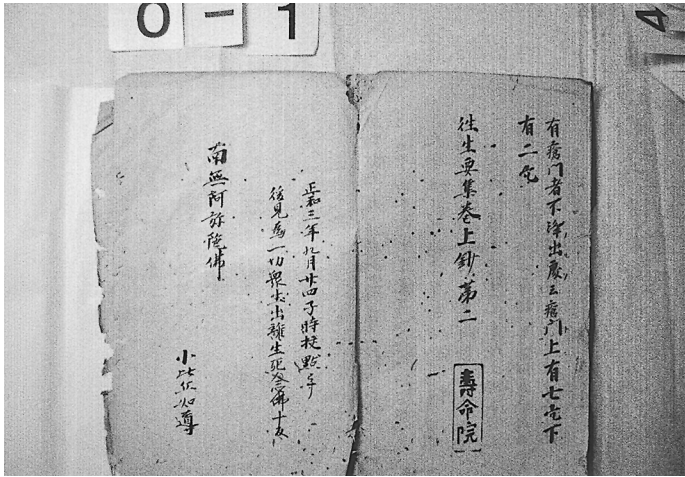 0-1
4
有瘡門者下淨出處云瘡門上有七乞下
有二乞
往生要集卷上鈔第二
壽命院
正和三年九月廿四子時挍點了
後見為一切衆生出離生死念佛十反
南無阿弥陀佛
小比丘知導